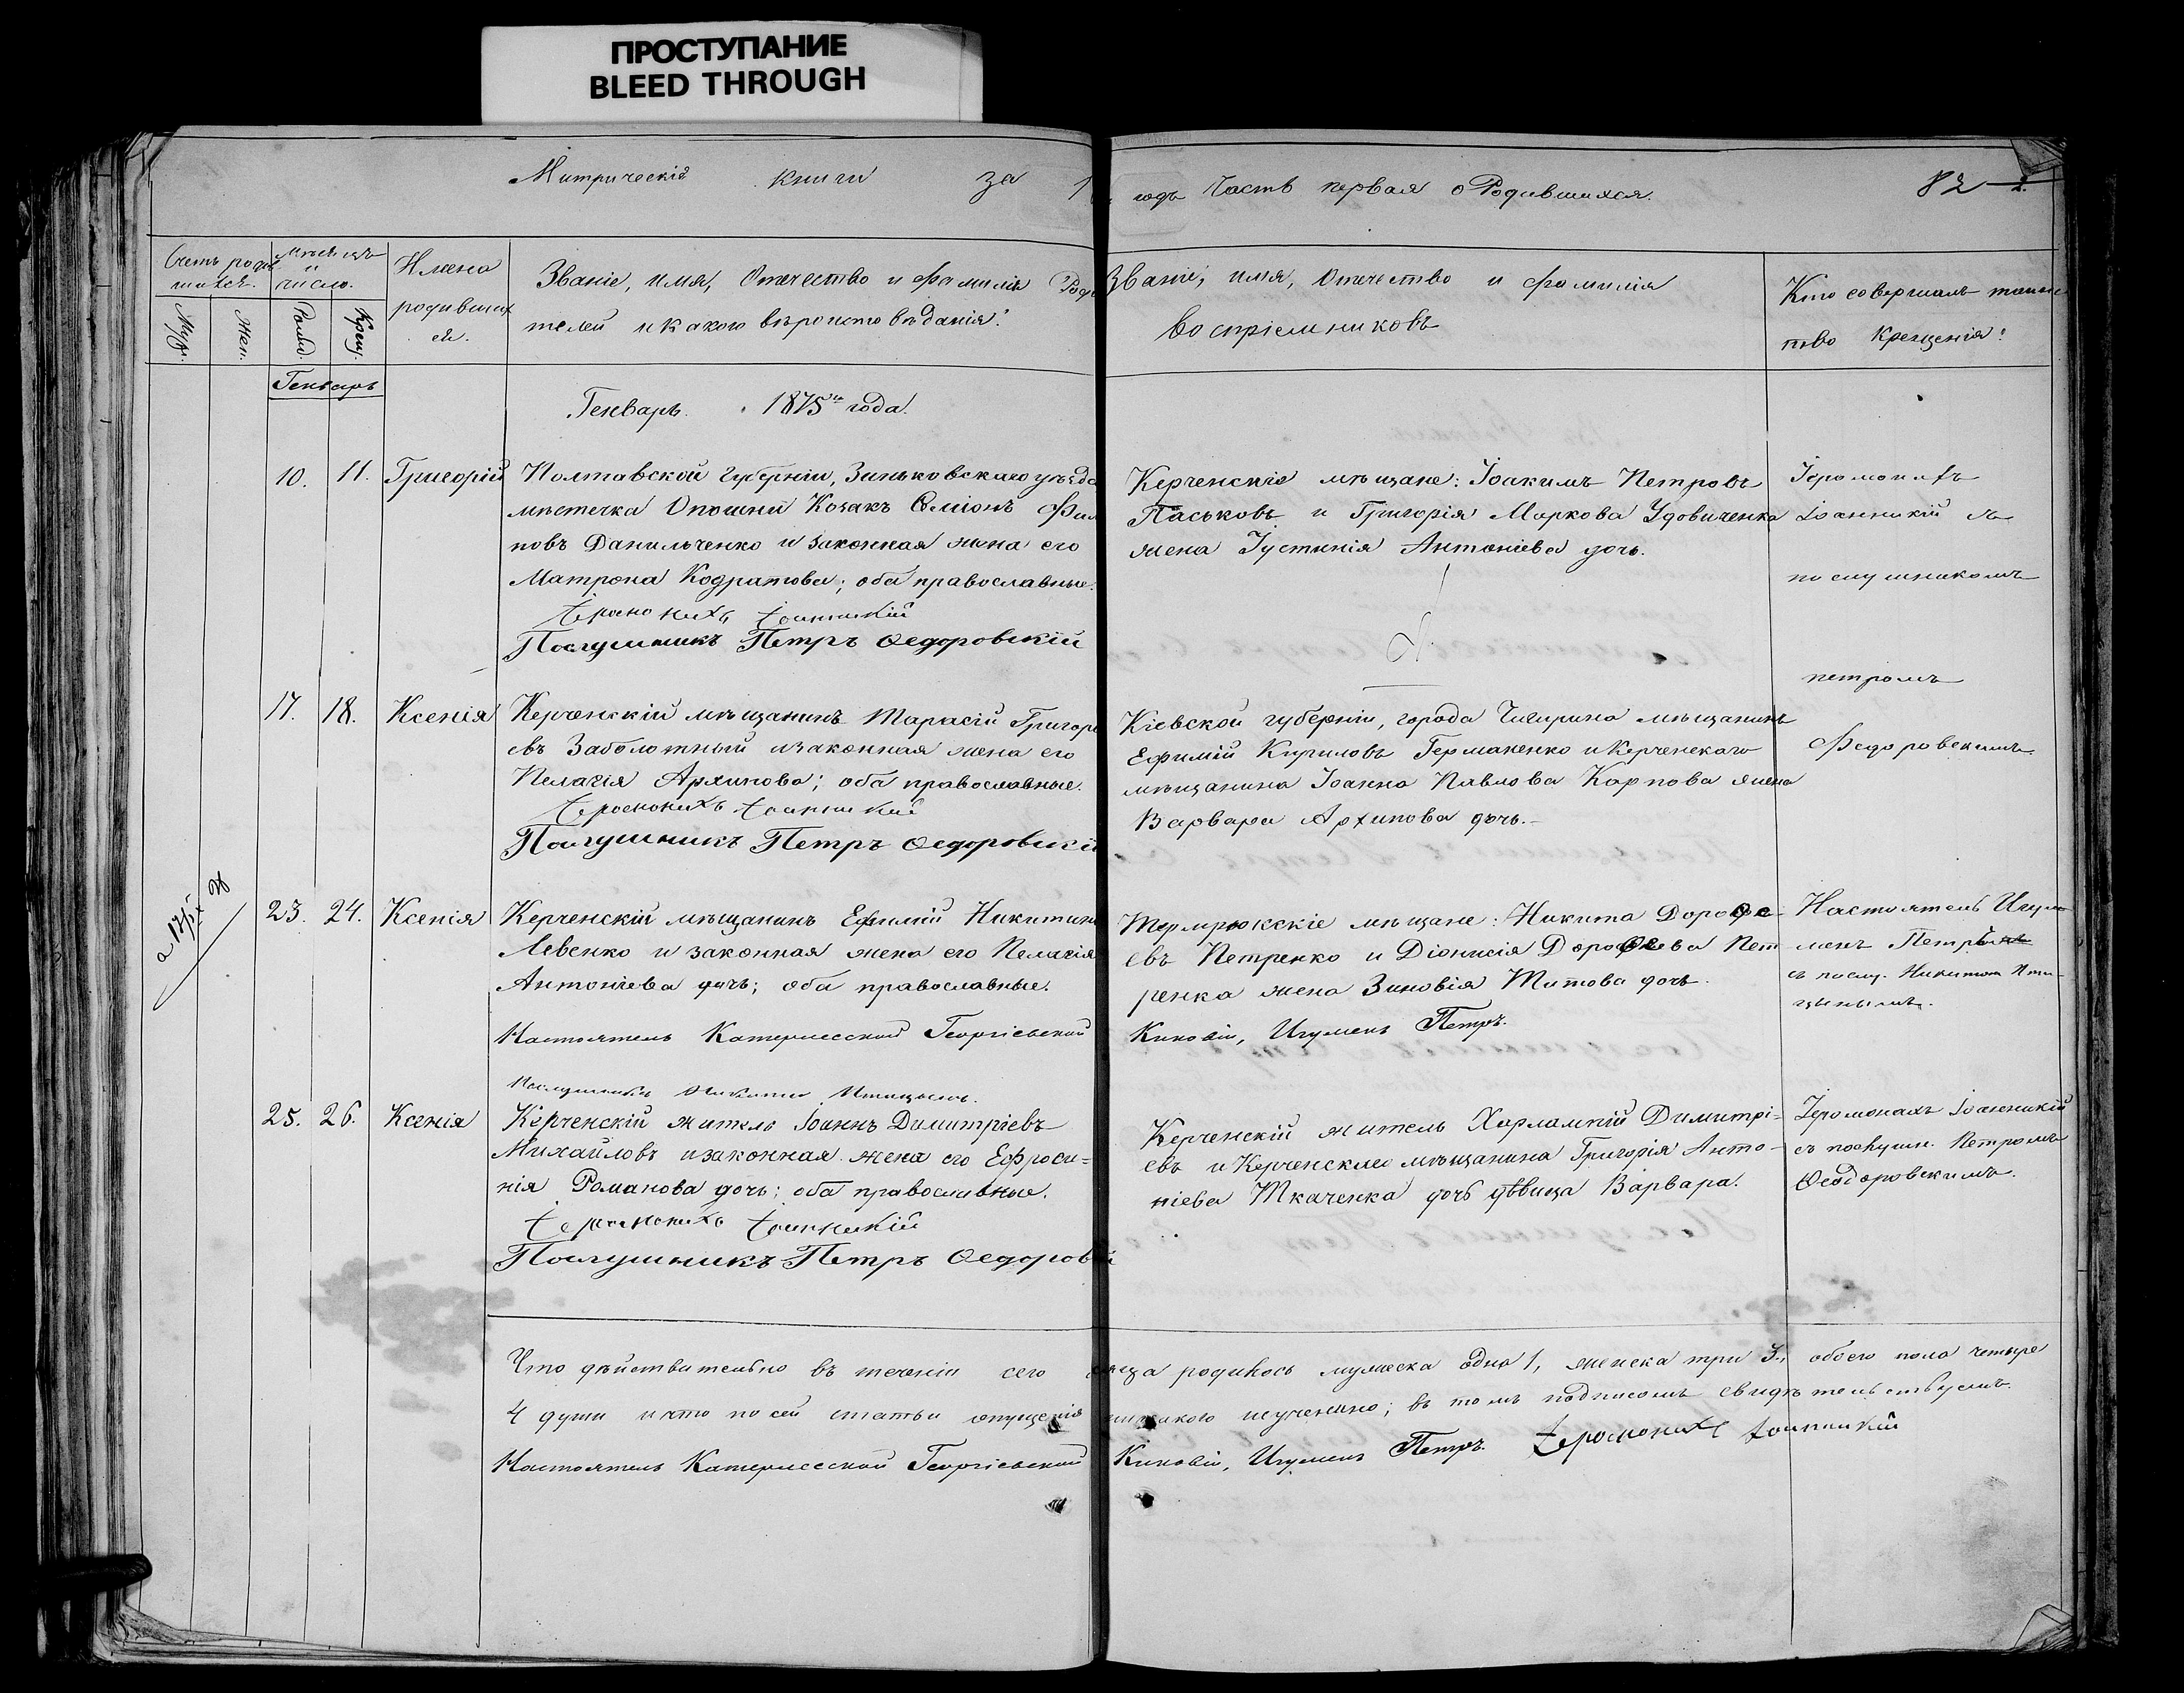 ПРОСТУПАНИЕ
BLEED THROUGH
Митрическія книги за 1
годъ Часть первая о Родившихся.
82
Счетъ родив
шихся.
Муж.
Жен.
Мѣсяцъ
и
число.
Рожд.
Крещ.
Имена
родивших
ся.
Званіе, имя, Отчество и Фамилія Роди
телей и какого вѣроисповѣданія.
Званіе, имя, Отчество и фамилія
Воспріемниковъ
Кто совершалъ таинс
тво Крещенія:
Генварь
Генварь. 1875го года.
10. 11. Григорій
Полтавской губерніи, Зиньковскаго уѣзда
мѣстечка Опошни Козакъ Симіонъ Фил
повъ Данильченко и законная жена его
Матрона Кодратова; оба православные.
Іеромонахъ Іоанникій
Послушникъ Петръ Ѳедоровскій
Керченскіе мѣщане: Іоакимъ Петровъ
Паськовъ и Григорія Маркова Удовиченка
жена Іустинія Антоніева дочь.
Іеромонахъ
Іоанникій съ
послушникомъ
петромъ
Федоровскимъ
17. 18. Ксенія
Керченскій мѣщанинъ Тарасій Григорі
евъ Заболотный и законная жена его
Пелагія Архипова; оба православные.
Іеромонахъ Іоанникій
Послушникъ Петръ Ѳедоровскій
Кіевской губерніи, города Чигирина мѣщанинъ
Ефимій Кириловъ Германенко и Керченскаго
мѣщанина Іоанна Павлова Карпова жена
Варвара Архипова дочь.
23. 24. Ксенія
Керченскій мѣщанинъ Ефимій Никитинъ
Левенко и законная жена его Пелагія
Антоніева дочь; оба православные.
Настоятель Катерлесской Георгіевской
Послушникъ Никита Птицынъ.
Темрюкскіе мѣщане: Никита Дорофе
евъ Петренко и Діонисія Дорофеева Пет
ренка жена Зиновія Титова дочь.
Киновіи, Игуменъ Петръ.
Настоятель Игу
менъ Петръ
съ послу. Никитою Пти
цынымъ.
25. 26. Ксенія
Керченскій житель Іоаннъ Димитріевъ
Михайловъ и законная жена его Ефроси=
нія Романова дочь; оба православные.
Іеромонахъ Іоанникій
Послушникъ Петръ Ѳедоров
Керченскій житель Харлампій Димитрі=
евъ и Керченскаго мѣщанина Григорія Анто-
ніева Ткаченка дочь дѣвица Варвара.
Іеромонахъ Іоанникій
съ послушн. Петромъ
Ѳеодоровскимъ.
Что дѣйствительно въ теченіи сего мѣсяца родилось мужеска одна 1, женска три 3, обоего пола четыре
4 души и что по сей статьи опущенія никакого неучинено; въ томъ подписомъ свидѣтельствуемъ.
Настоятель Катерлесской Георгіевской Киновіи, Игуменъ Петръ. Іеромонахъ Іоанникій